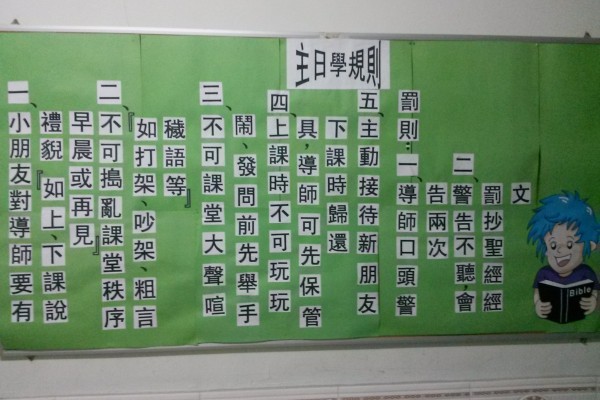 主日學規則
一、小朋友對導師要有
禮貌『如上、下課說
早晨或再見』
二、不可搗亂課堂秩序
『如打架、吵架、粗言
穢語等』
三、不可課堂大聲喧
鬧、發問前先舉手
四、上課時不可玩玩
具,導師可先保管
下課時歸還
五、主動接待新朋友
罰則:一、導師口頭警
告兩次
二、警告不聽,會
罰抄聖經經
文
Bible